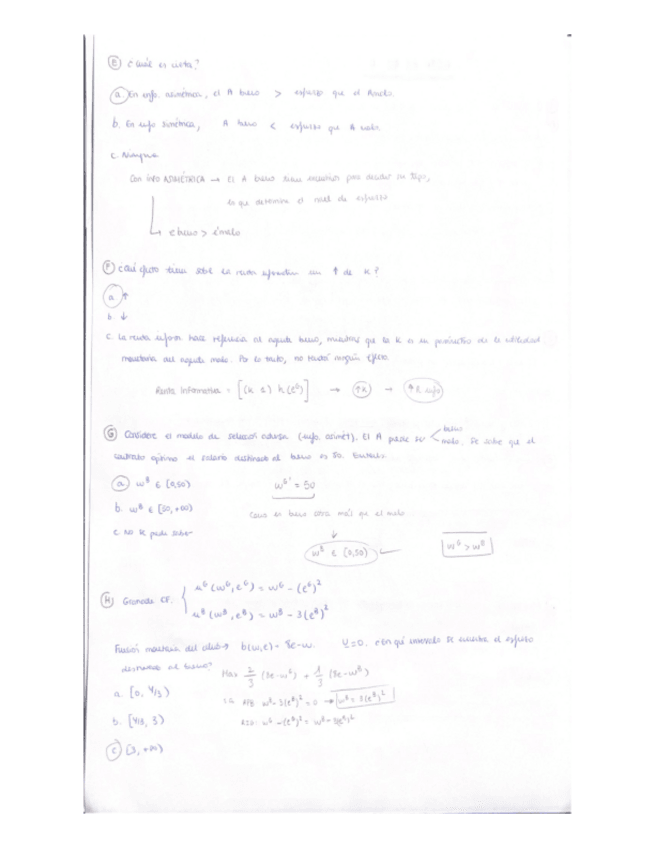 E ¿Cuál es cierta?
a. En info. asimétrica, el A bueno > esfuerzo que el A malo.
b. En info simétrica, A bueno < esfuerzo que A malo.
c. Ninguna
Con info ASIMÉTRICA → El A bueno tiene incentivos para desvelar su tipo,
lo que determina el nivel de esfuerzo
→ e bueno > e malo
F ¿Qué efecto tiene sobre la renta informativa un ↑ de k?
a ↑
b ↓
c. La renta inform hace referencia al agente bueno, mientras que la k es un parámetro de la utilidad
monetaria del agente malo. Por lo tanto, no tendrá ningún efecto.
Renta Informativa = [(k 1) h(e^G)] → ↑k → ↑ R info
G Considere el modelo de selección adversa (info. asimét). El A puede ser < bueno malo. Se sabe que el
contrato óptimo el salario destinado al bueno es 50. Entonces
a. w^B ∈ [0,50) w^G* = 50
b. w^B ∈ [50,+∞)
Como es bueno cobra más que el malo
c. No se puede saber
w^B ∈ [0,50) w^G > w^B
H Granada CF: { u^G(w^G, e^G) = w^G - (e^G)^2
u^B(w^B, e^B) = w^B - 3(e^B)^2
Función monetaria del club → b(w,e) = 8e-w. U=0. ¿En qué intervalo se encuentra el esfuerzo
destinado al bueno?
Max 2/3 (8e-w^G) + 1/3 (8e-w^B)
a. [0, 4/3)
s.a w^B - 3(e^B)^2 = 0 → w^B = 3(e^B)^2
b. [4/3, 3)
w^G - (e^G)^2 = w^B - (e^B)^2
c [3, +∞)